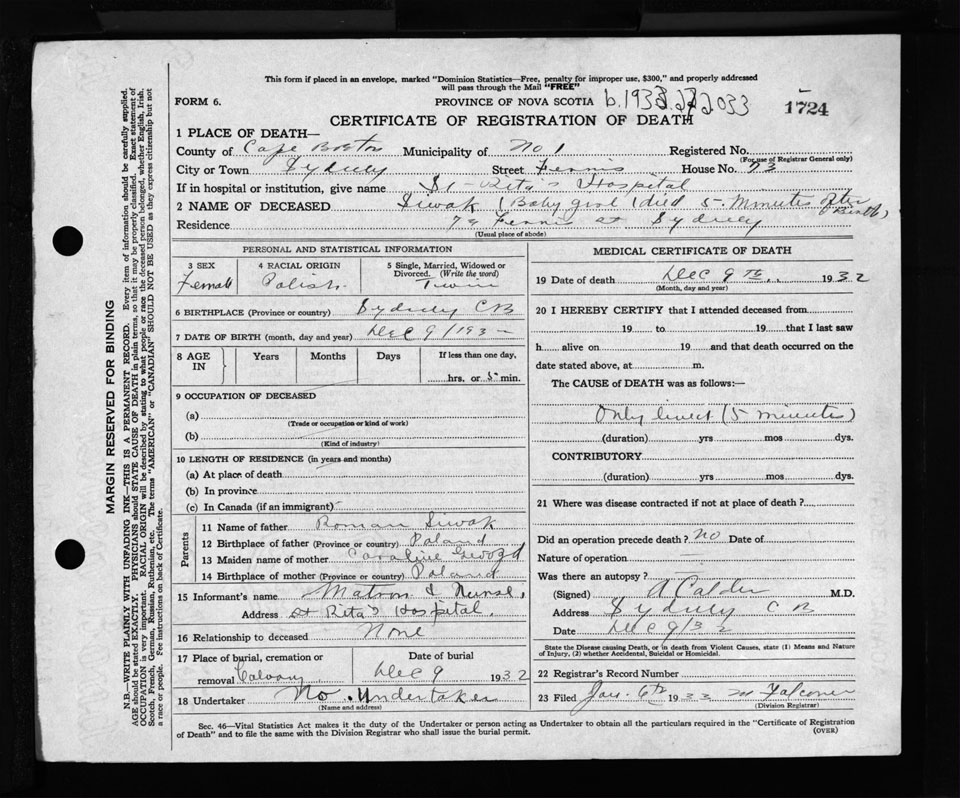 This form if placed in an envelope, marked "Dominion Statistics—Free, penalty for improper use, $300," and properly addressed
will pass through the Mail "FREE"
FORM 6.
PROVINCE OF NOVA SCOTIA
1724
CERTIFICATE OF REGISTRATION OF DEATH
1 PLACE OF DEATH—
County of Cape Breton Municipality of No 1 Registered No.
(For use of Registrar General only)
City or Town Sydney Street Ferris House No. 73
If in hospital or institution, give name St-Rita's Hospital
2 NAME OF DECEASED Siwak (Baby girl) died 5 minutes after Birth)
Residence Ferris st Sydney
(Usual place of abode)
PERSONAL AND STATISTICAL INFORMATION
3 SEX 4 RACIAL ORIGIN 5 Single, Married, Widowed or Divorced. (Write the word)
Female Polish Twin
6 BIRTHPLACE (Province or country) Sydney CB
7 DATE OF BIRTH (month, day and year) Dec 9/193
8 AGE IN Years Months Days If less than one day,
hrs. or 5 min.
9 OCCUPATION OF DECEASED
(a)
(Trade or occupation or kind of work)
(b)
(Kind of industry)
10 LENGTH OF RESIDENCE (in years and months)
(a) At place of death
(b) In province
(c) In Canada (if an immigrant)
Parents
11 Name of father Roman Siwak
12 Birthplace of father (Province or country) Poland
13 Maiden name of mother Caroline Gwozd
14 Birthplace of mother (Province or country) Poland
15 Informant's name Matron & Nurse,
Address St Rita's Hospital.
16 Relationship to deceased None
17 Place of burial, cremation or removal Calvary Date of burial Dec 9 1932
18 Undertaker No Undertaker
(Name and address)
MEDICAL CERTIFICATE OF DEATH
19 Date of death Dec 9th 1932
(Month, day and year)
20 I HEREBY CERTIFY that I attended deceased from
19 to 19 that I last saw
h alive on 19 and that death occurred on the
date stated above, at m.
The CAUSE of DEATH was as follows:—
Only lived (5 minutes)
(duration) yrs mos dys.
CONTRIBUTORY
(duration) yrs mos dys.
21 Where was disease contracted if not at place of death?
Did an operation precede death? No Date of
Nature of operation
Was there an autopsy?
(Signed) A Calder M.D.
Address Sydney C B
Date Dec 9/32
State the Disease causing Death, or in death from Violent Causes, state (1) Means and Nature
of Injury, (2) whether Accidental, Suicidal or Homicidal.
22 Registrar's Record Number
23 Filed Jan. 6th 1933 M Falconer
(Division Registrar)
Sec. 46—Vital Statistics Act makes it the duty of the Undertaker or person acting as Undertaker to obtain all the particulars required in the "Certificate of Registration
of Death" and to file the same with the Division Registrar who shall issue the burial permit.
(OVER)
MARGIN RESERVED FOR BINDING
N.B.—WRITE PLAINLY WITH UNFADING INK—THIS IS A PERMANENT RECORD. Every item of information should be carefully supplied.
AGE should be stated EXACTLY. PHYSICIANS should STATE CAUSE OF DEATH in plain terms, so that it may be properly classified. Exact statement of
OCCUPATION is very important. RACIAL ORIGIN will be described by stating to what people or race the deceased person belonged, whether English, Irish,
Scotch, French, German, Russian, Ruthenian, etc. The terms "AMERICAN" or "CANADIAN" SHOULD NOT BE USED as they express citizenship but not
a race or people. See instructions on back of Certificate.